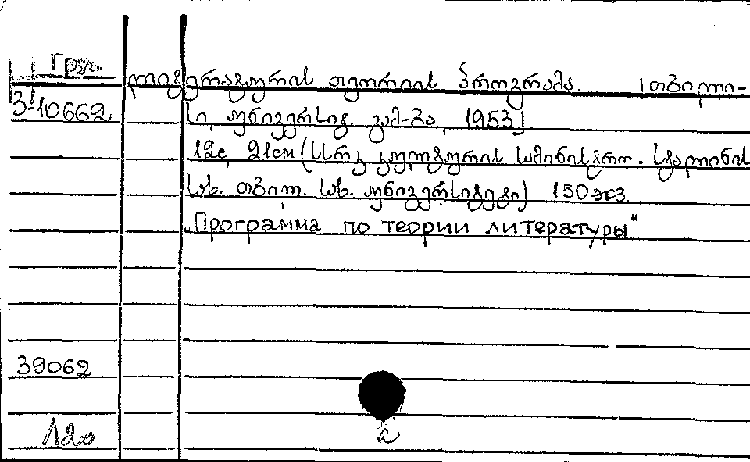 Груз.
ლიტერატურის თეორიის პროგრამა. [თბილი-
3-10662.
სი, უნივერსიტ. გამ-ბა, 1953]
12с, 21см (სსრკ კულტურის სამინისტრო. სტალინის
სახ. თბილ. სახ. უნივერსიტეტი) 150 экз.
„Программа по теории литературы"
39062